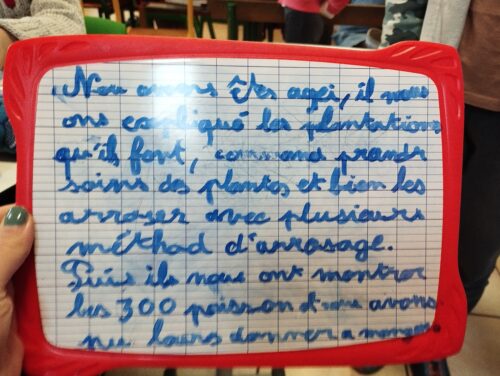 Nous avons êtes agri, il nous
ons expliqué les plantations
qu'ils font, comment prandr
soins des plantes et bien les
arroser avec plusieurs
méthod d'arrosage.
Puis ils nous ont montrer
les 300 poisson et nous avons
pu leurs donner a manger